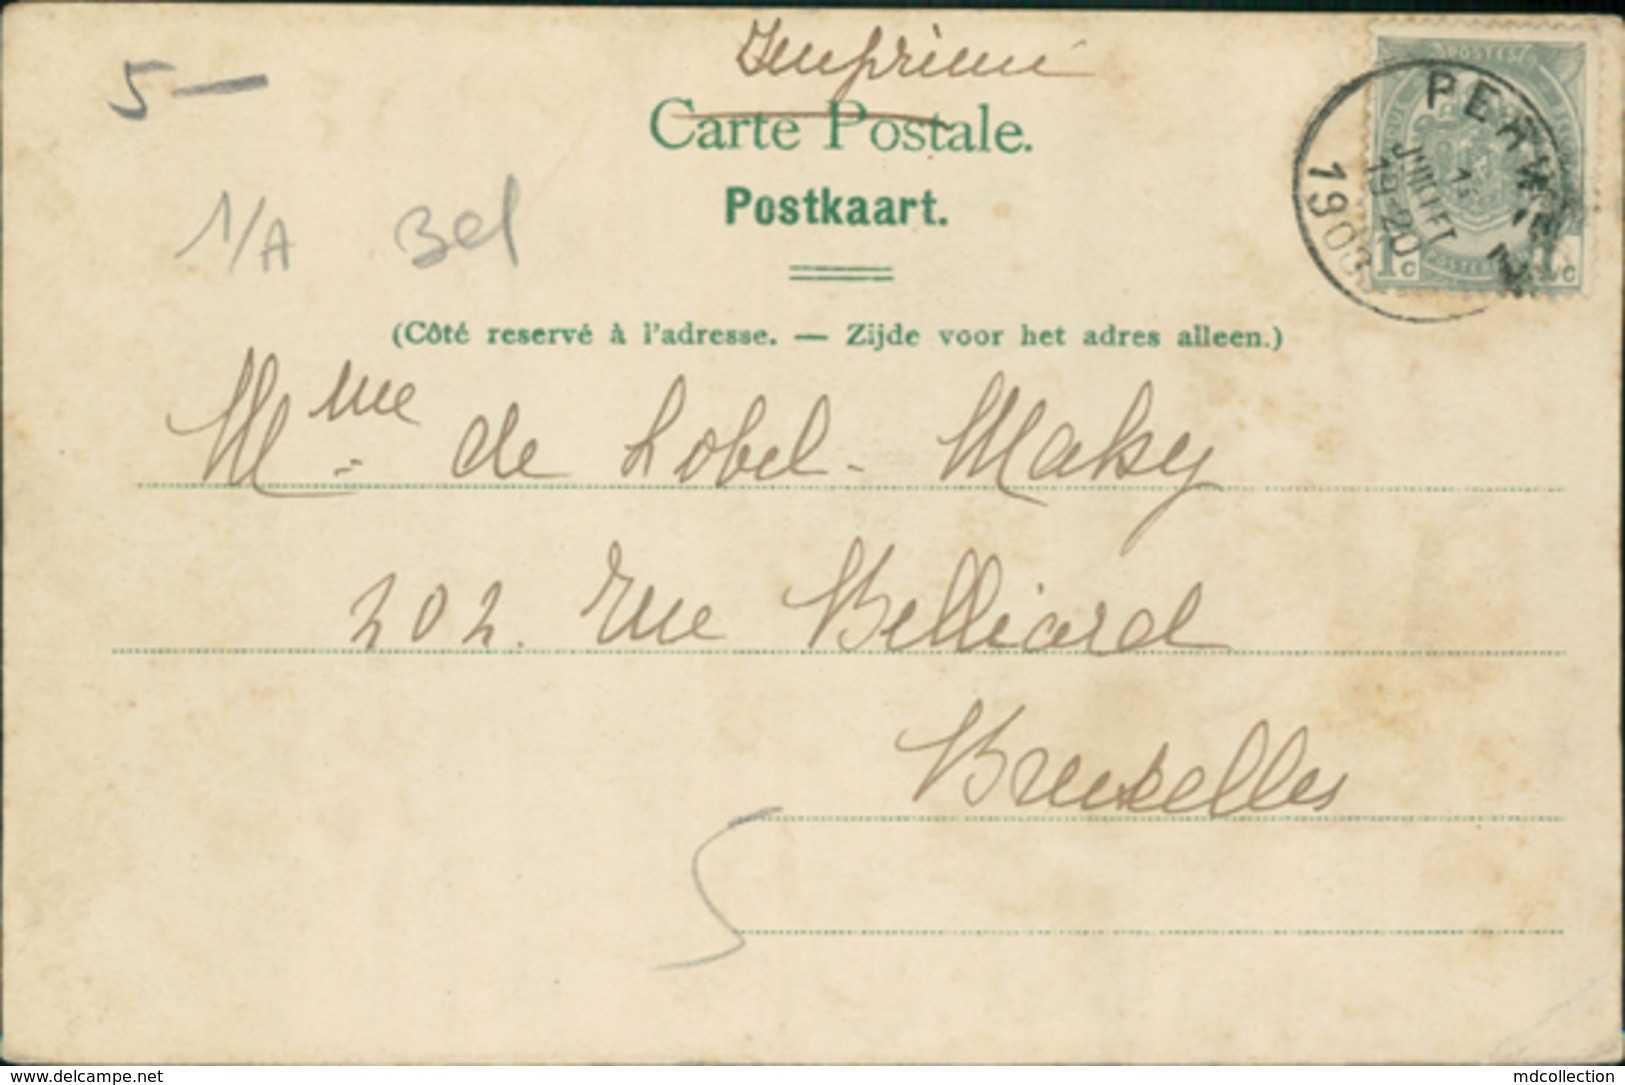 Imprimé
5 —
Carte Postale.
Postkaart.
1/A Bel
POSTES
1903
JUILLET
19-20
1c
(Côté reservé à l'adresse. — Zijde voor het adres alleen.)
Mme de Lobel-Mahy
202. rue Belliard
Bruxelles
5
www.delcampe.net
mdcollection